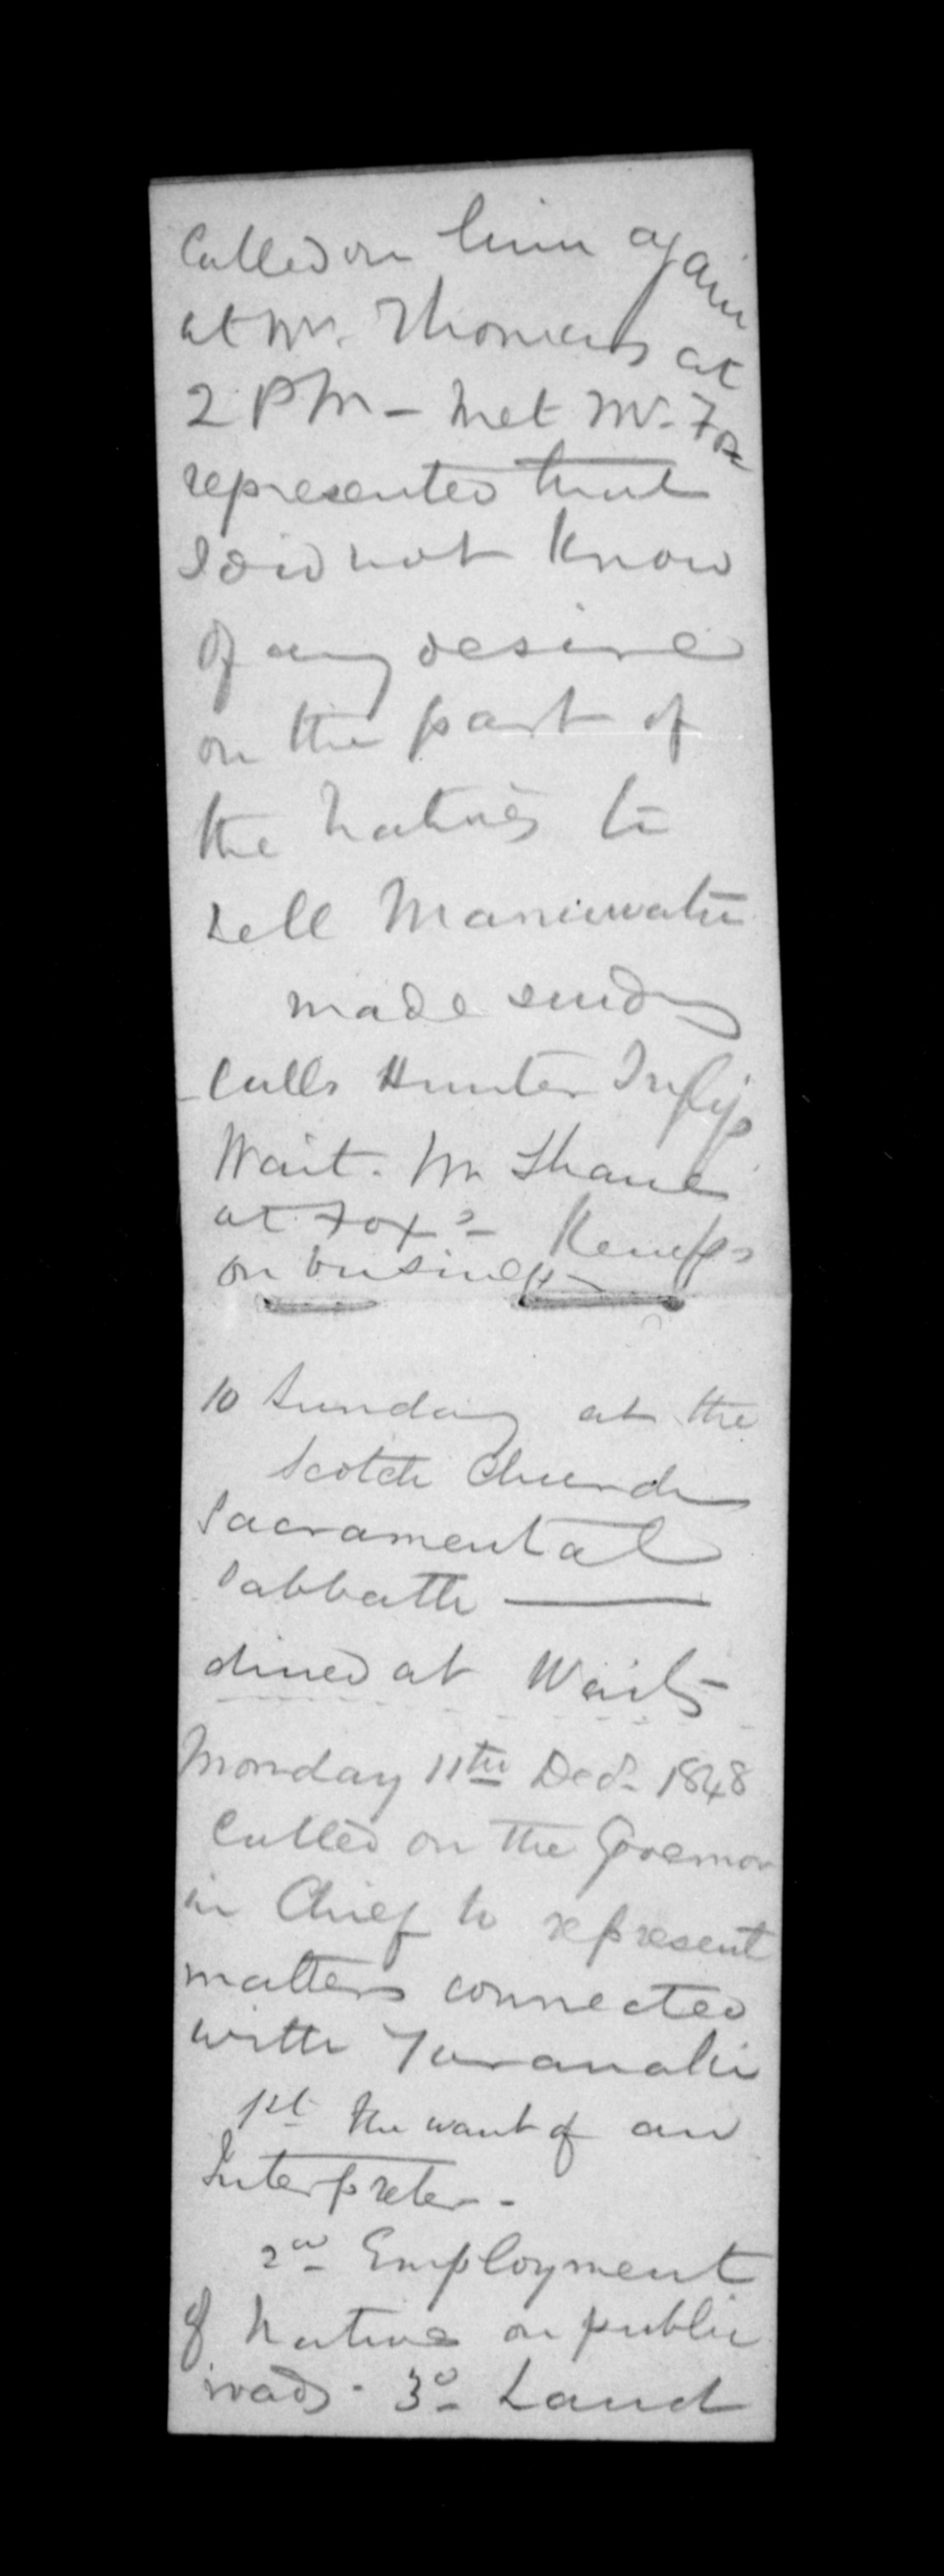 Called on him again
at Mr. Thomas at
2 PM - Met Mr. Fox
represented that
I did not know
of any desire
on the part of
the Natives to
sell Manuwatu
made sundry
Calls Hunter
Wait. Mr Shane
at Fox's Kemps
on business
10 Sunday at the
Scotch Church
Sacramental
Sabbath
dined at Waits
Monday 11th Decr. 1848
Called on the Governor
in Chief to represent
matters connected
with Taranaki
1st the want of an
Interpreter -
2nd Employment
of Natives on public
roads. 3d Land